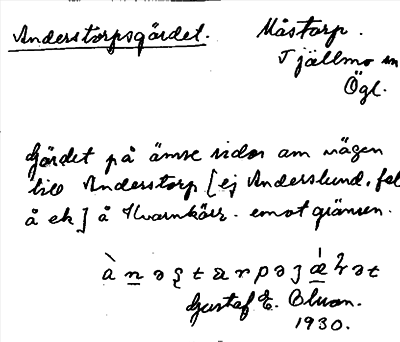 Anderstorpsgärdet. Måstorp.
Tjällmo sn
Ögl.
Gärdet på ömse sidor om vägen
till Anderstorp [ej Anderslund, fel
å ek] å Kvarnkärr. emot gränsen.
Gustaf E. Olson.
1930.